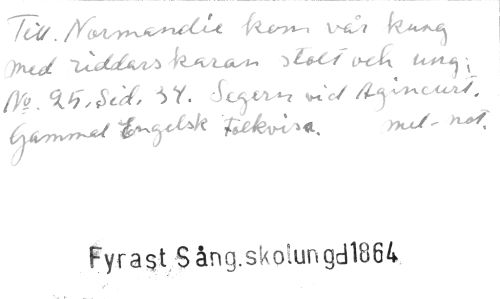 Till Normandie kom vår kung
med riddarskaran stolt och ung;
No. 25. Sid. 34. Segern vid Agincurt.
Gammal Engelsk Folkvisa. mel-not.
Fyrast Sång.skolungd1864